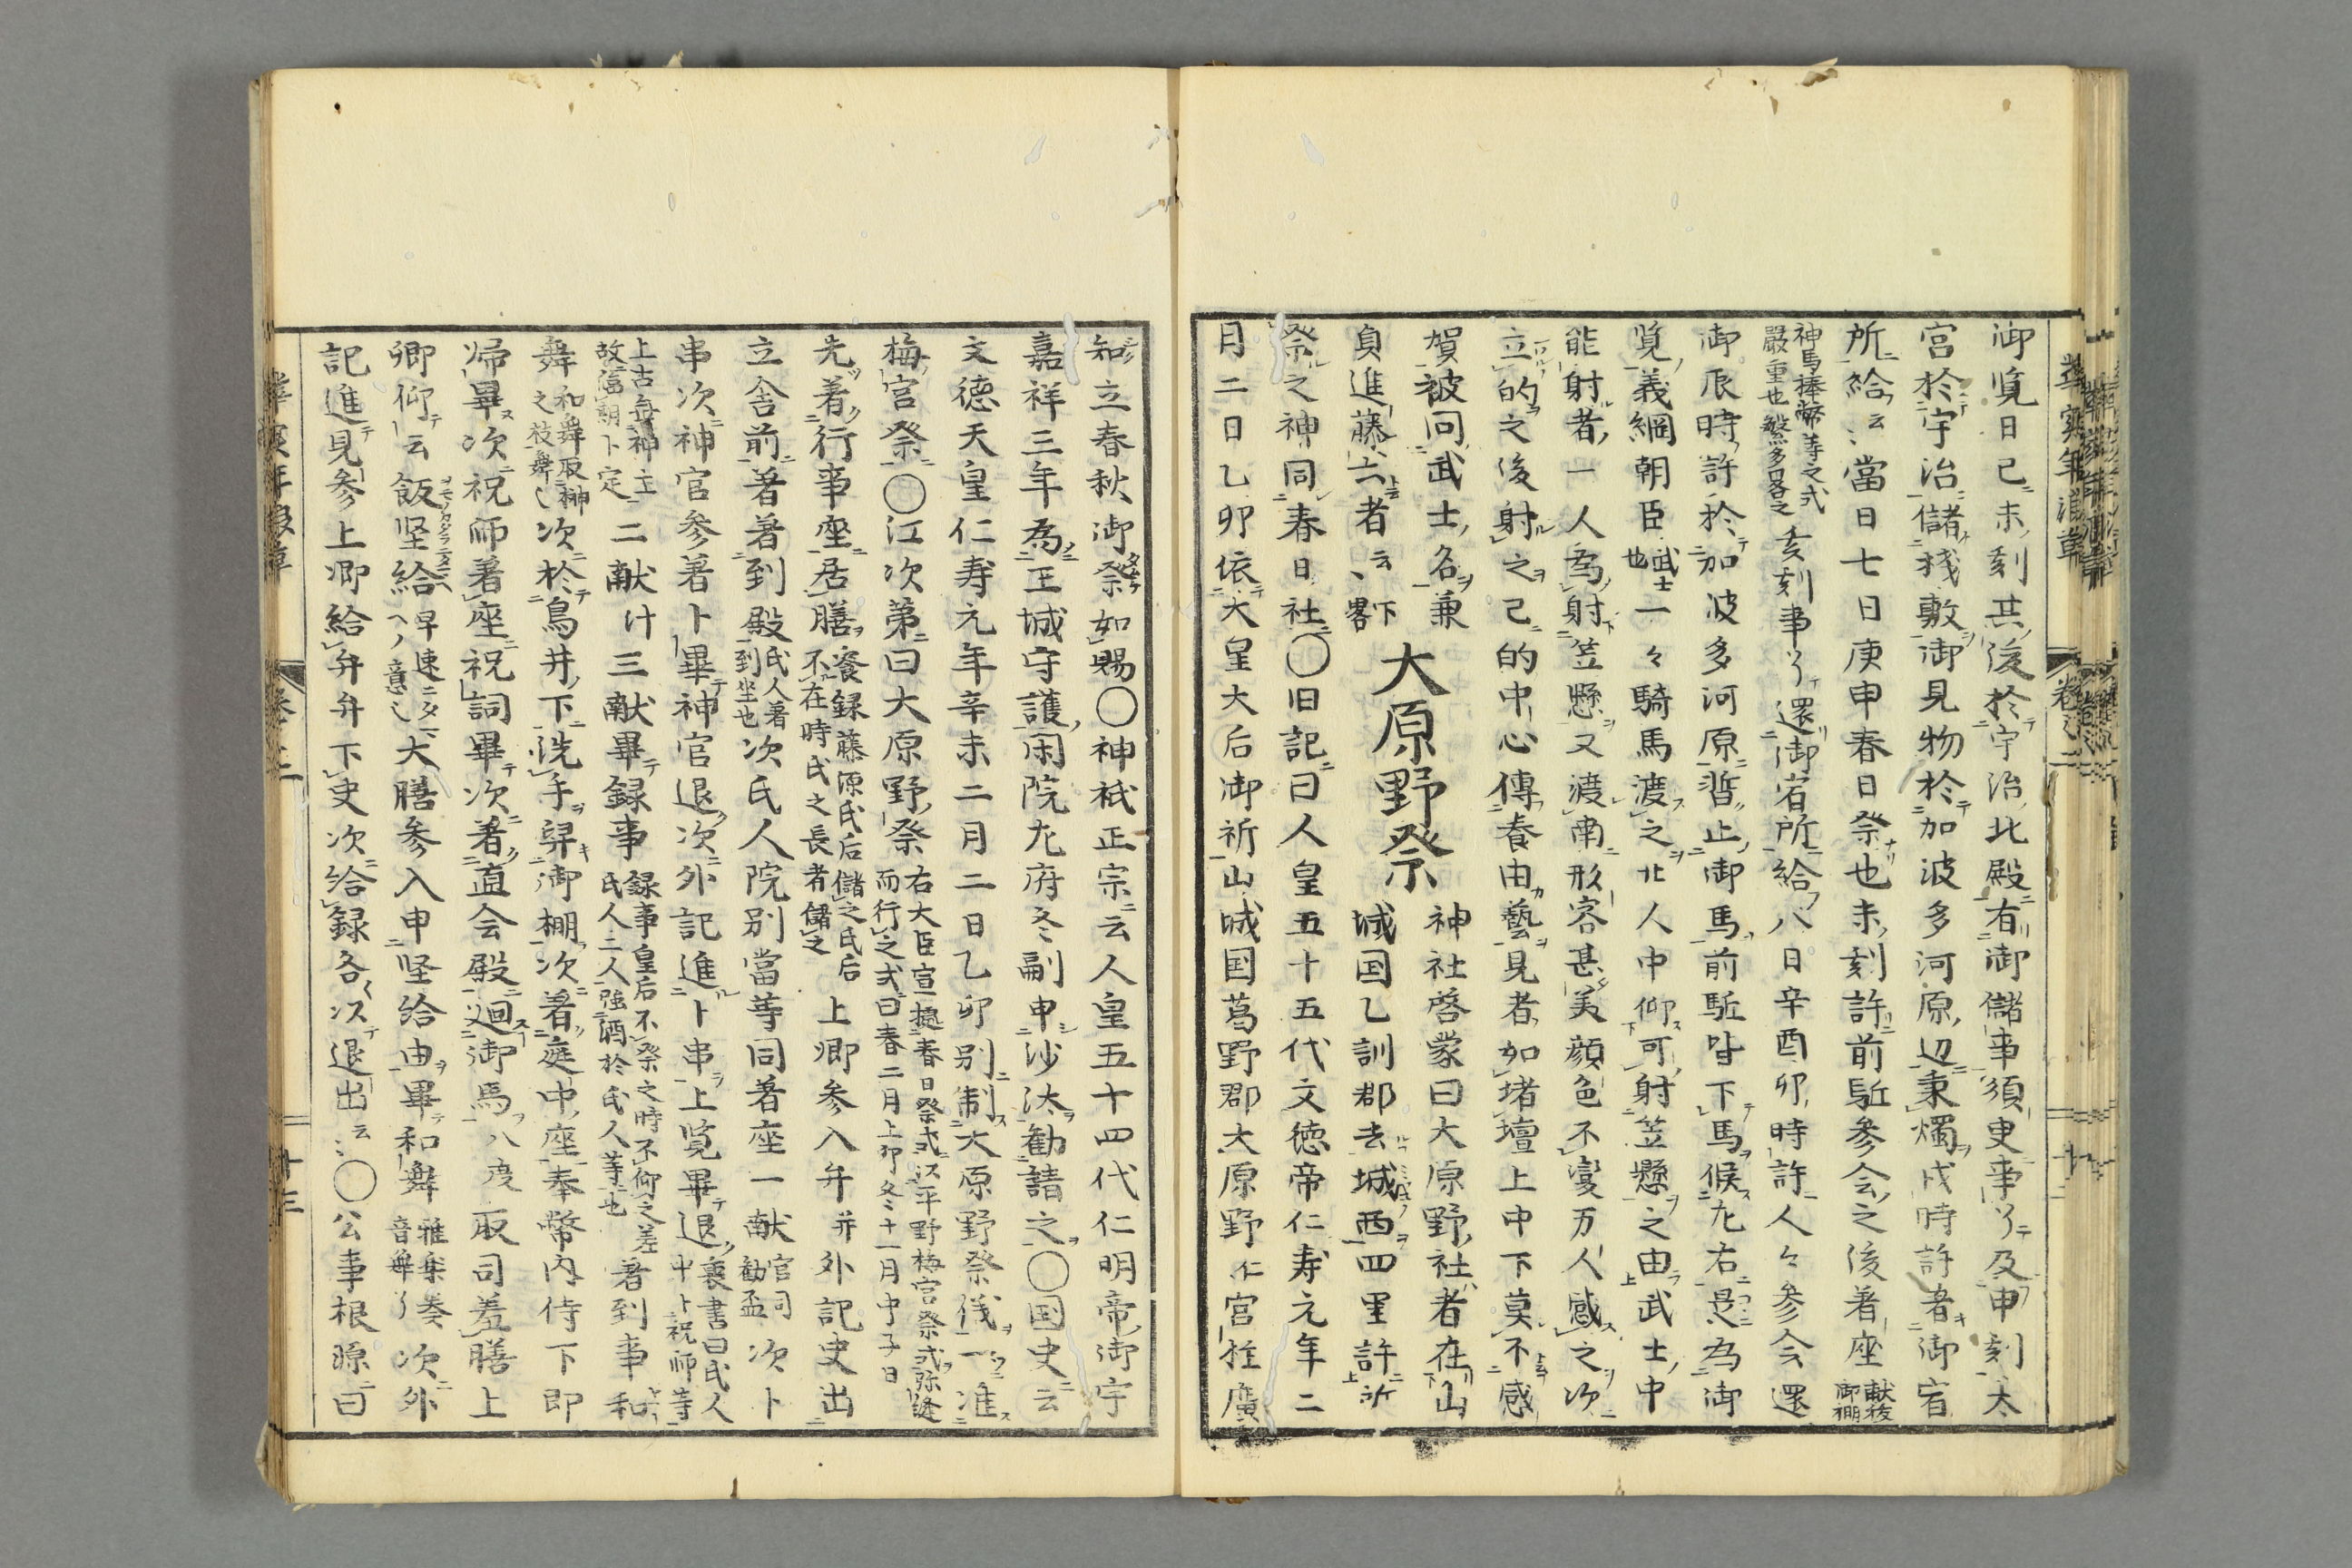 御覧日已未刻其後於宇治北殿有御儲事須臾事了及申刻太
宮於宇治儲桟敷御見物於加波多河原辺秉燭戌時許着御宿
所給云〻當日七日庚申春日祭也未刻許前駈参会之後着座 献後御棚
神馬捧幣等之式嚴重也繁多畧之 亥刻事了還御宿所給八日辛酉卯時許人々参会還
御辰時許於加波多河原暫止御馬前駈皆下馬候左右是為御
覧義綱朝臣武士也一々騎馬渡之北人中仰可射笠懸之由武士中
能射者一人為射笠懸又渡南形容甚美顔色不変万人感之次
立的之後射之己的中心傳養由藝見者如堵壇上中下莫不感
賀被問武士名兼
員進藤六者云〻下畧
大原野祭
神社啓蒙曰大原野社者在山
城国乙訓郡去城西四里許所
祭之神同春日社〇旧記曰人皇五十五代文徳帝仁寿元年二
月二日乙卯依大皇大后御祈山城国葛野郡大原野仁宮柱廣
知立春秋御祭如賜〇神祇正宗云人皇五十四代仁明帝御宇
嘉祥三年為王城守護閑院左府冬嗣申沙汰勧請之〇国史云
文徳天皇仁寿元年辛未二月二日乙卯別制大原野祭儀一准
梅宮祭〇江次第曰大原野祭右大臣宣摠春日祭式以平野梅宮祭式弥縫而行之式曰春二月上卯冬十一月中子日
先着行事座居膳饗録藤源氏后儲之氏后不在時氏之長者儲之 上卿参入弁并外記史出
立舎前著著到殿氏人著到坐也次氏人院別當等同著座一献官司勧盃次卜
串次神官参著卜畢神官退次外記進卜串上覧畢退裏書曰氏人中卜祝師等
上古毎神主故信朝卜定 二献汁三献畢録事録事皇后不祭之時不仰之差氏人二人強酒於氏人等也 著到事和
舞和舞取榊之枝舞也次於鳥井下洗手舁御棚次著庭中座奉幣内侍下即
帰畢次祝師著座祝詞畢次著直会殿廻御馬八度取司羞膳上
卿仰云飯堅給早速ニタヘノ意也大膳参入申堅給由畢和舞雅楽奏音舞了次外
記進見参上卿給弁弁下史次給録各次退出云〻〇公事根源曰